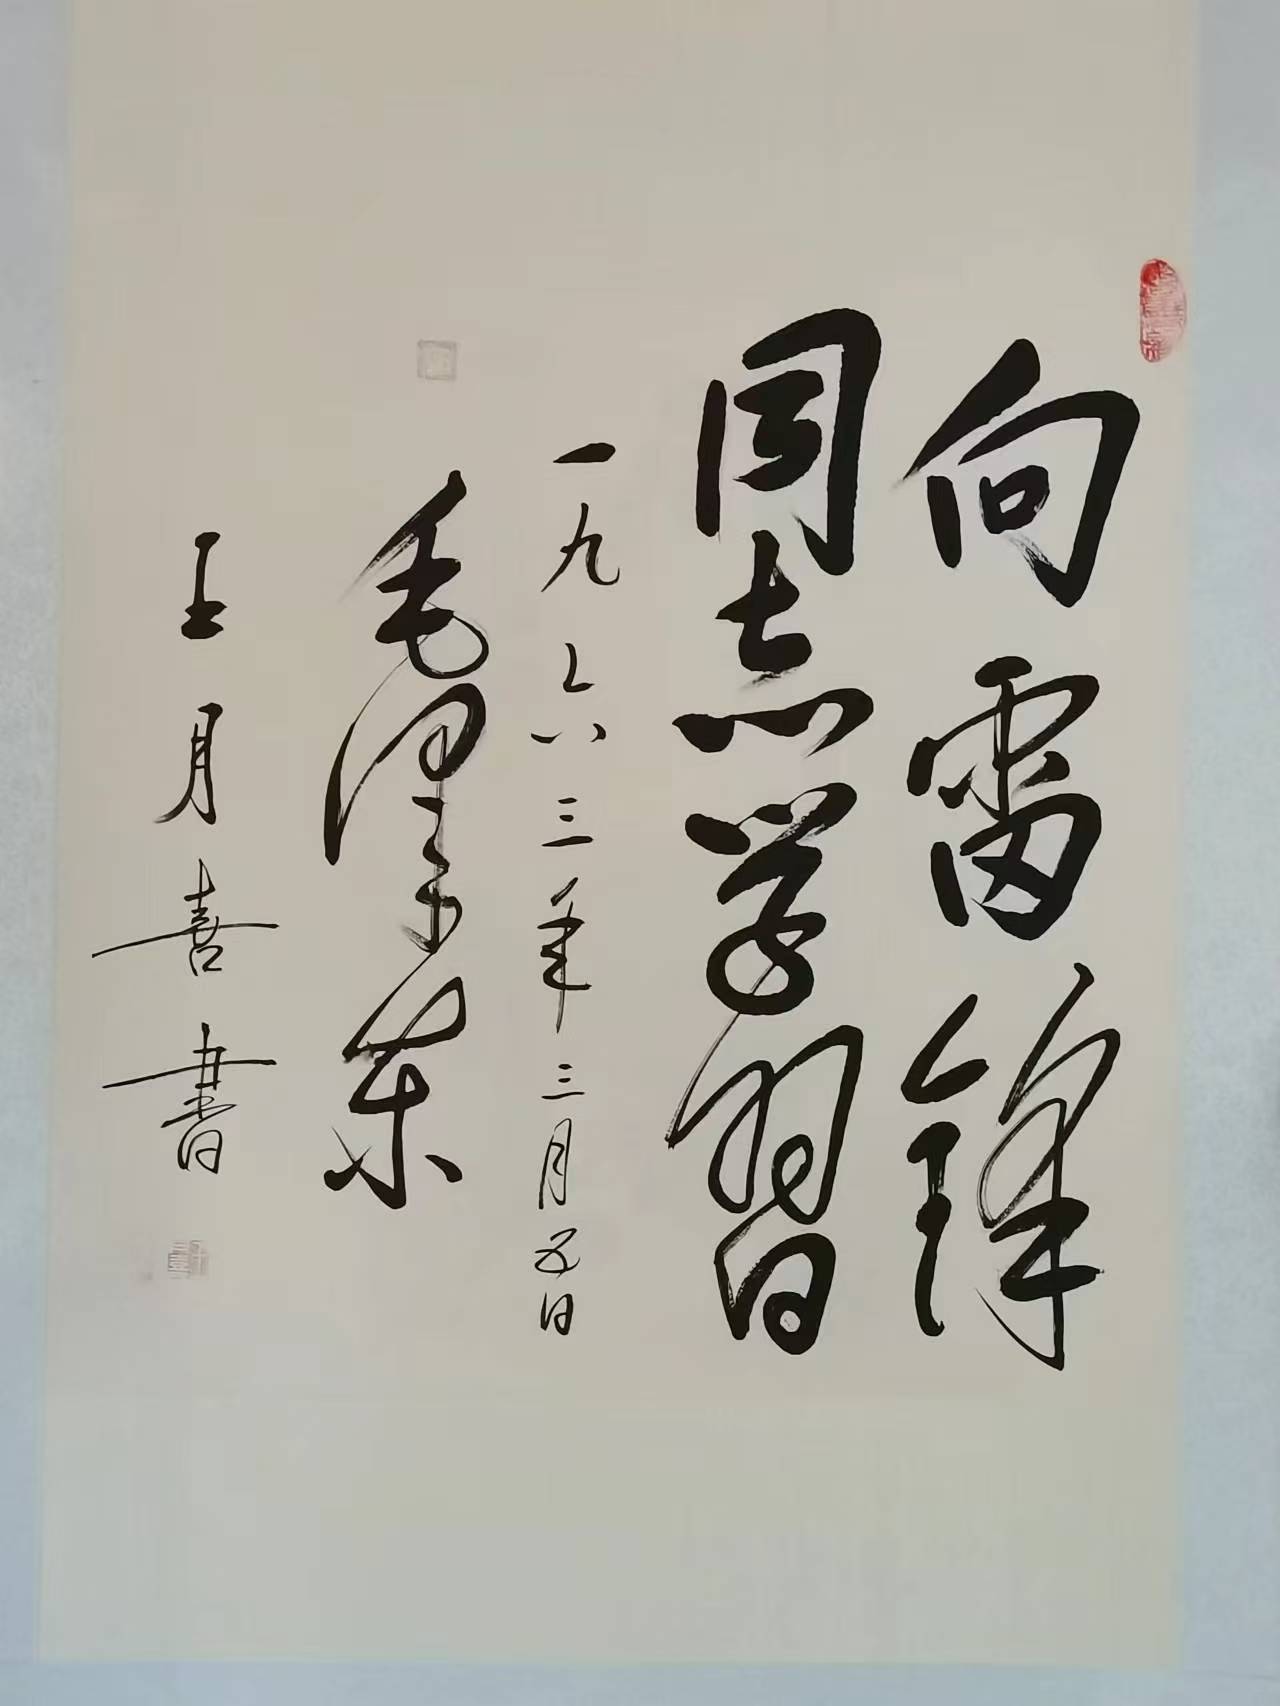 向雷锋
同志学习
一九六三年三月五日
毛泽东
王月喜书